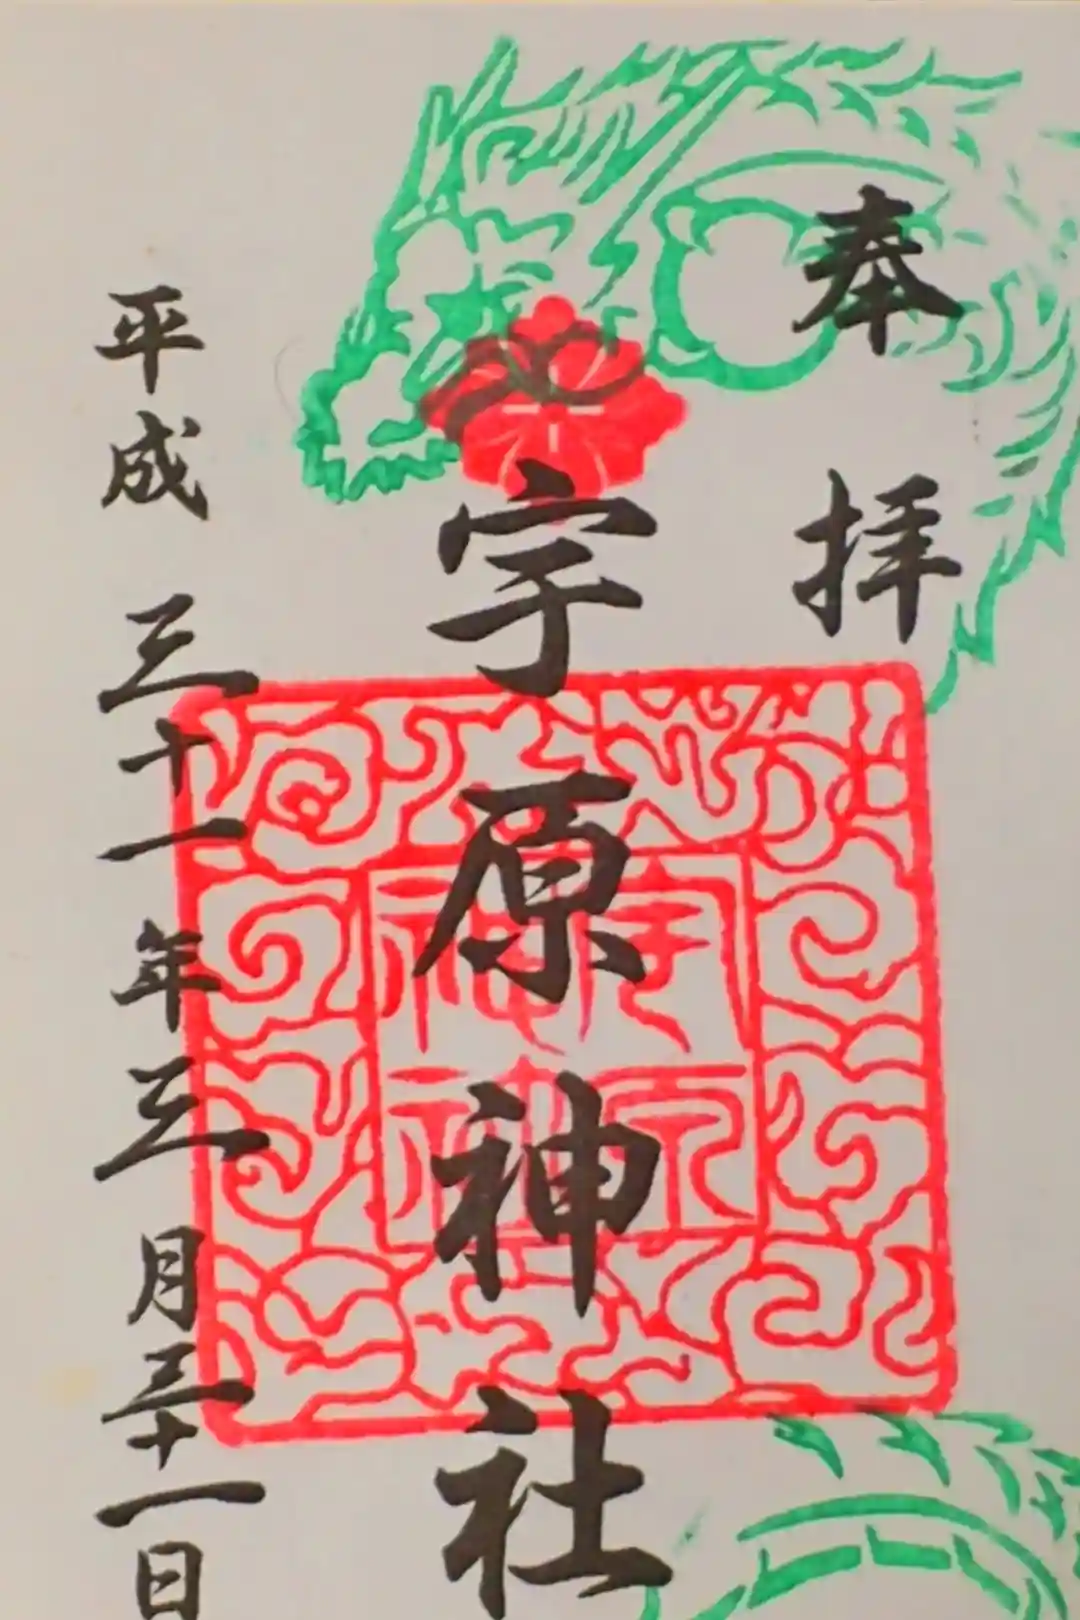 奉拝
宇原神社
平成三十一年三月三十一日
宇原
神社